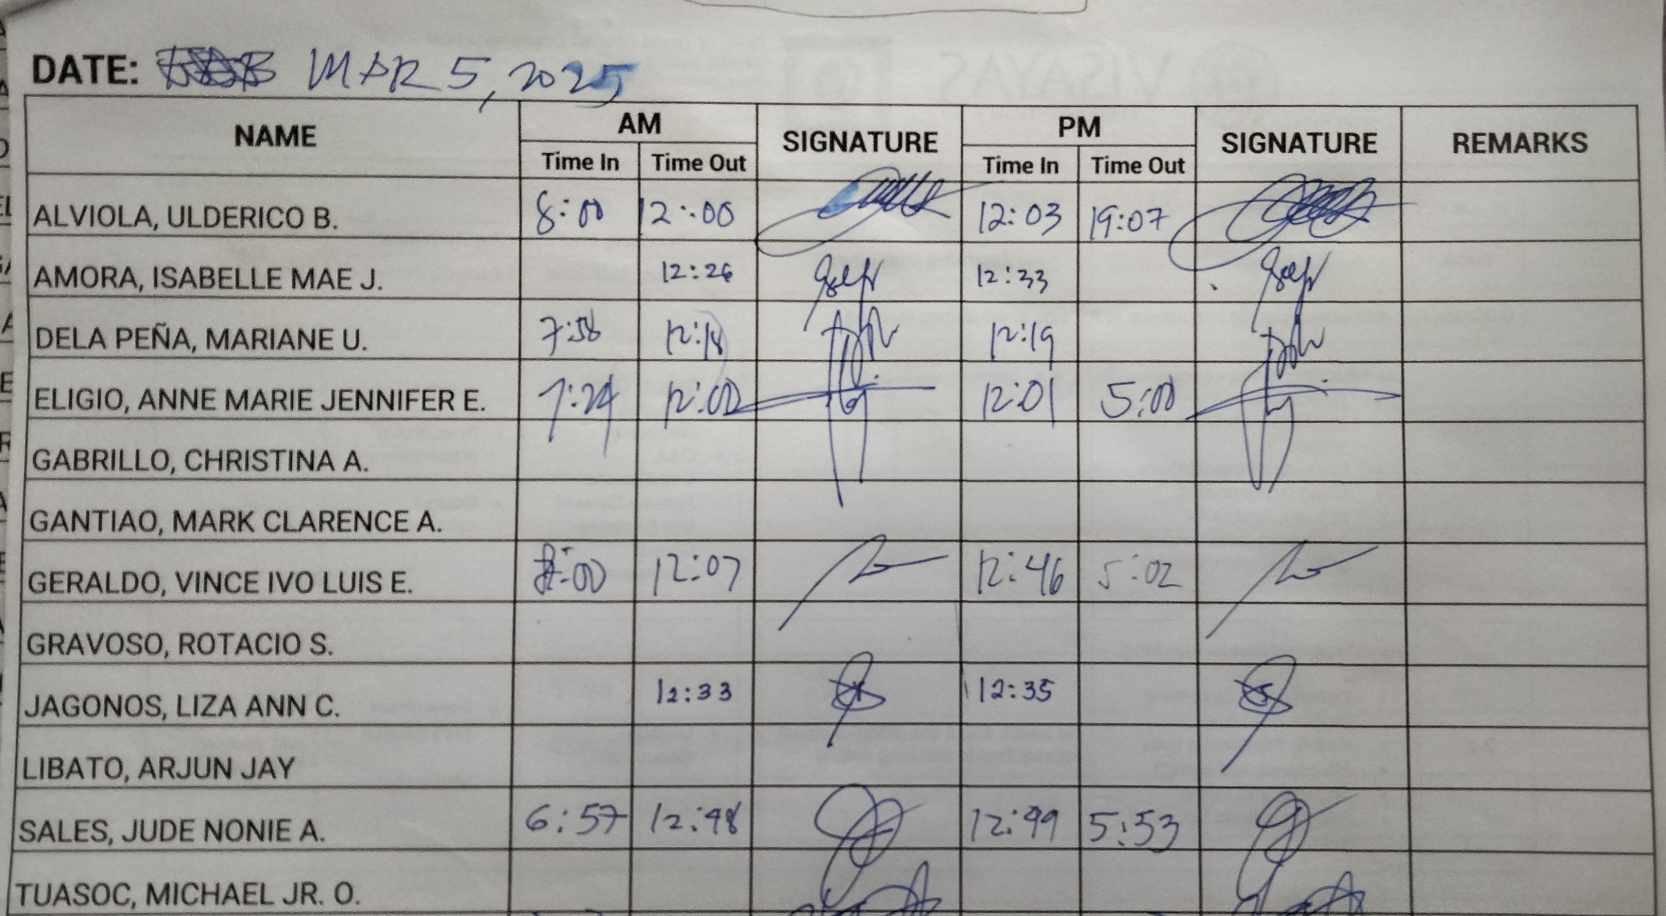 DATE: MAR 5, 2025
NAME AM SIGNATURE PM SIGNATURE REMARKS
Time In Time Out Time In Time Out
ALVIOLA, ULDERICO B. 8:00 12:00 12:03 19:07
AMORA, ISABELLE MAE J. 12:26 12:33
DELA PEÑA, MARIANE U. 7:58 12:18 12:19
ELIGIO, ANNE MARIE JENNIFER E. 7:24 12:00 12:01 5:00
GABRILLO, CHRISTINA A.
GANTIAO, MARK CLARENCE A.
GERALDO, VINCE IVO LUIS E. 8:00 12:07 12:46 5:02
GRAVOSO, ROTACIO S.
JAGONOS, LIZA ANN C. 12:33 12:35
LIBATO, ARJUN JAY
SALES, JUDE NONIE A. 6:57 12:48 12:49 5:53
TUASOC, MICHAEL JR. O.